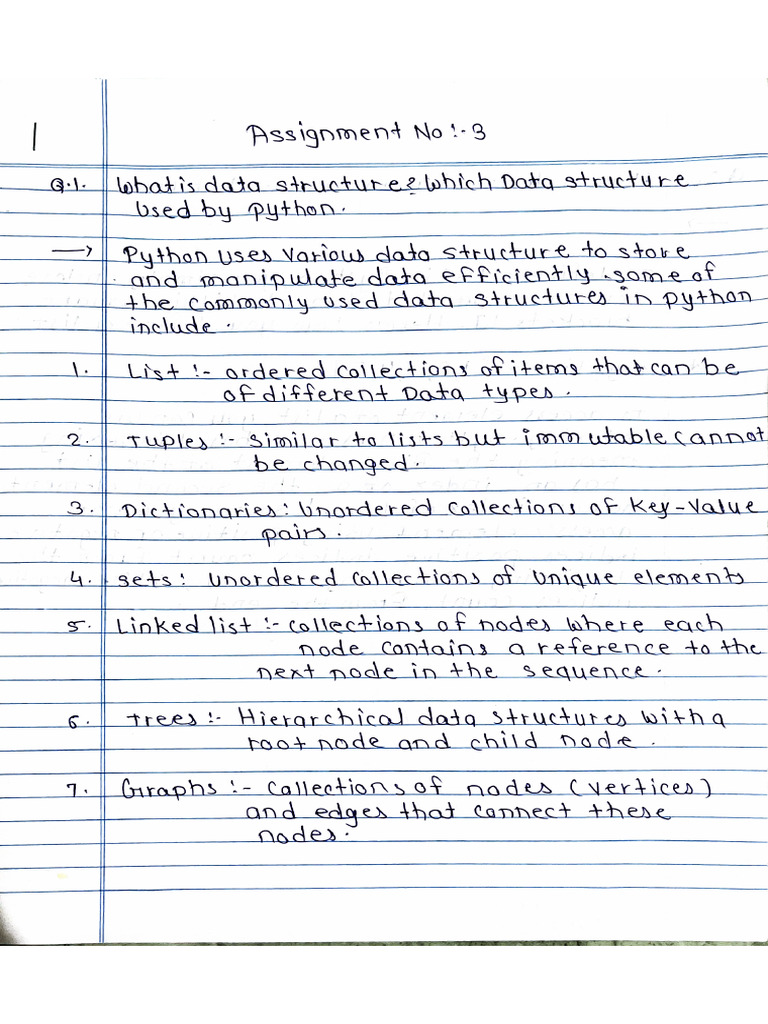 1
Assignment No :- 3
Q.1. What is data structure? Which Data structure
Used by python.
→ Python uses various data structure to store
and manipulate data efficiently. some of
the commonly used data structures in python
include.
1. List :- ordered collections of items that can be
of different Data types.
2. Tuples :- similar to lists but immutable cannot
be changed.
3. Dictionaries : Unordered collections of key-value
pairs.
4. sets : Unordered collections of unique elements
5. Linked list :- collections of nodes where each
node contains a reference to the
next node in the sequence.
6. Trees :- Hierarchical data structures with a
root node and child node.
7. Graphs :- Collections of nodes (vertices)
and edges that connect these
nodes.